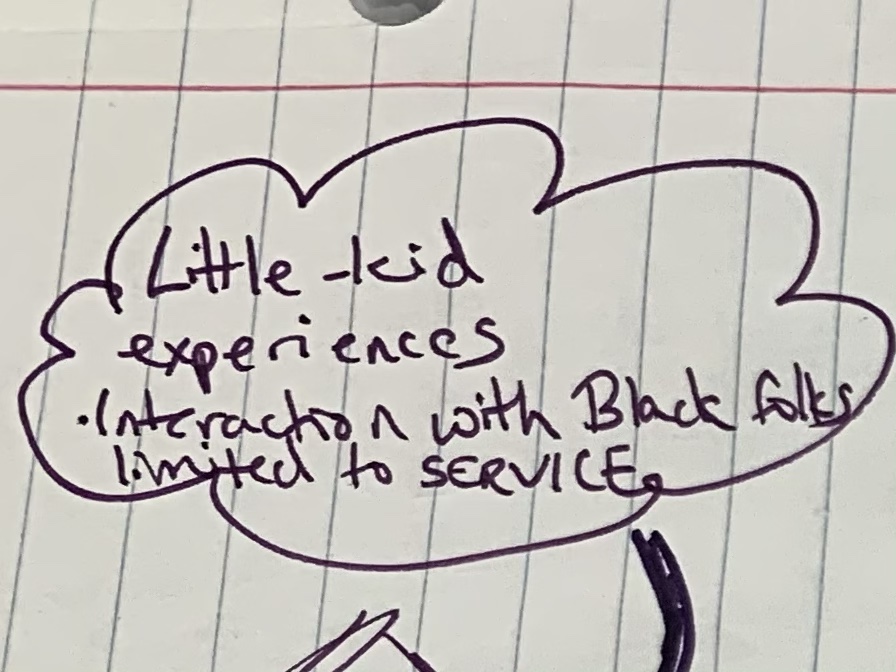 Little-kid
experiences
·Interaction with Black folks
limited to SERVICE